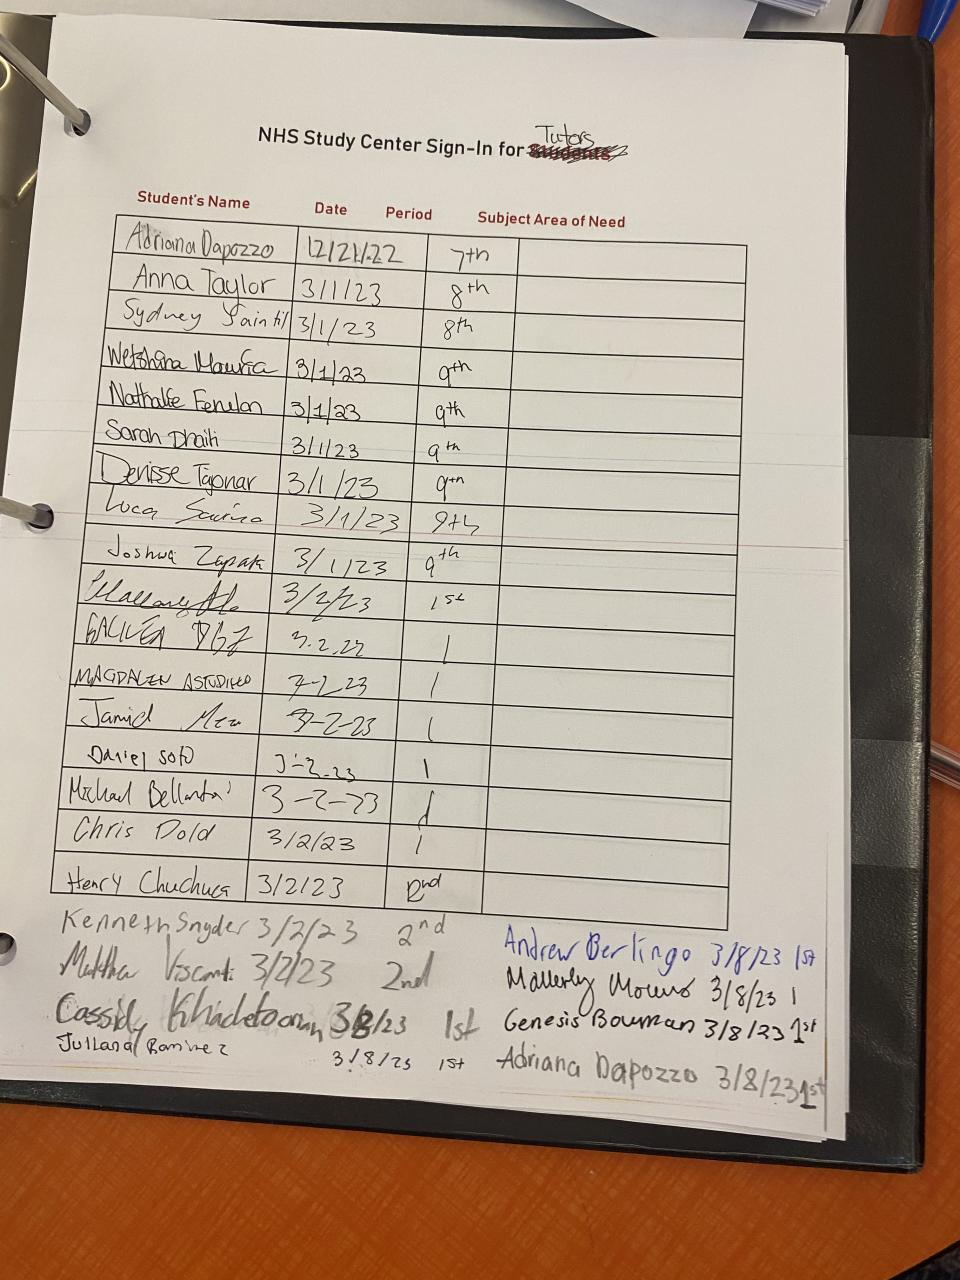 Tutors
NHS Study Center Sign-In for Students
Student's Name Date Period Subject Area of Need
Adriana Dapozzo 12/21/22 7th
Anna Taylor 3/1/23 8th
Sydney Saintil 3/1/23 8th
3/1/23 9th
Nathalie Fenelon 3/1/23 9th
Sarah Dhaiti 3/1/23 9th
Denisse Tajonar 3/1/23 9th
Luca 3/1/23 9th
Joshua Zapata 3/1/23 9th
3/2/23 1st
1
MAGDALEN ASTUDILLO 1
3-2-23 1
Daniel Soto 3-2-23 1
Michael 3-2-23
Chris Dold 3/2/23 1
Henry Chuchuca 3/2/23 2nd
Kenneth Snyder 3/2/23 2nd
Visconti 3/2/23 2nd
Cassidy 3/8/23 1st
Juliana Ramirez 3/8/23 1st
Andrew Berlingo 3/8/23 1st
3/8/23 1
Genesis Bowman 3/8/23 1st
Adriana Dapozzo 3/8/23 1st